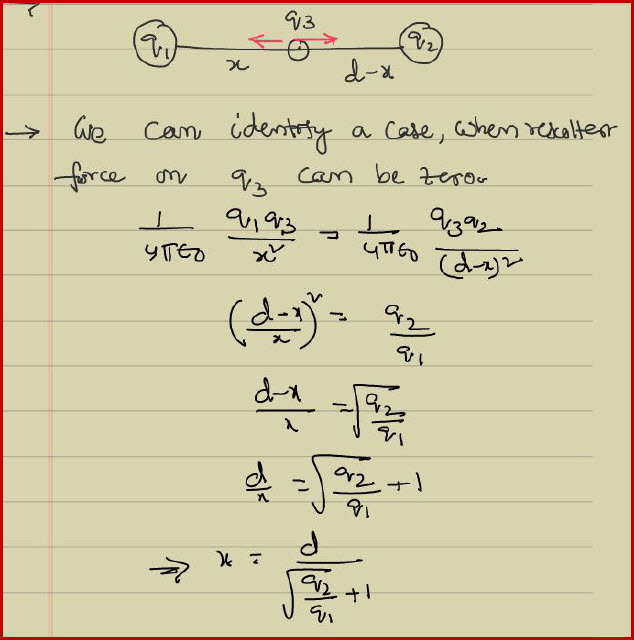 q₃
q₁ q₂
x d-x
→ We can identify a case, when resultant
force on q₃ can be zero.
1/4πε₀ q₁q₃/x² = 1/4πε₀ q₃q₂/(d-x)²
((d-x)/x)² = q₂/q₁
(d-x)/x = √(q₂/q₁)
d/x = √(q₂/q₁) + 1
⇒ x = d/(√(q₂/q₁) + 1)